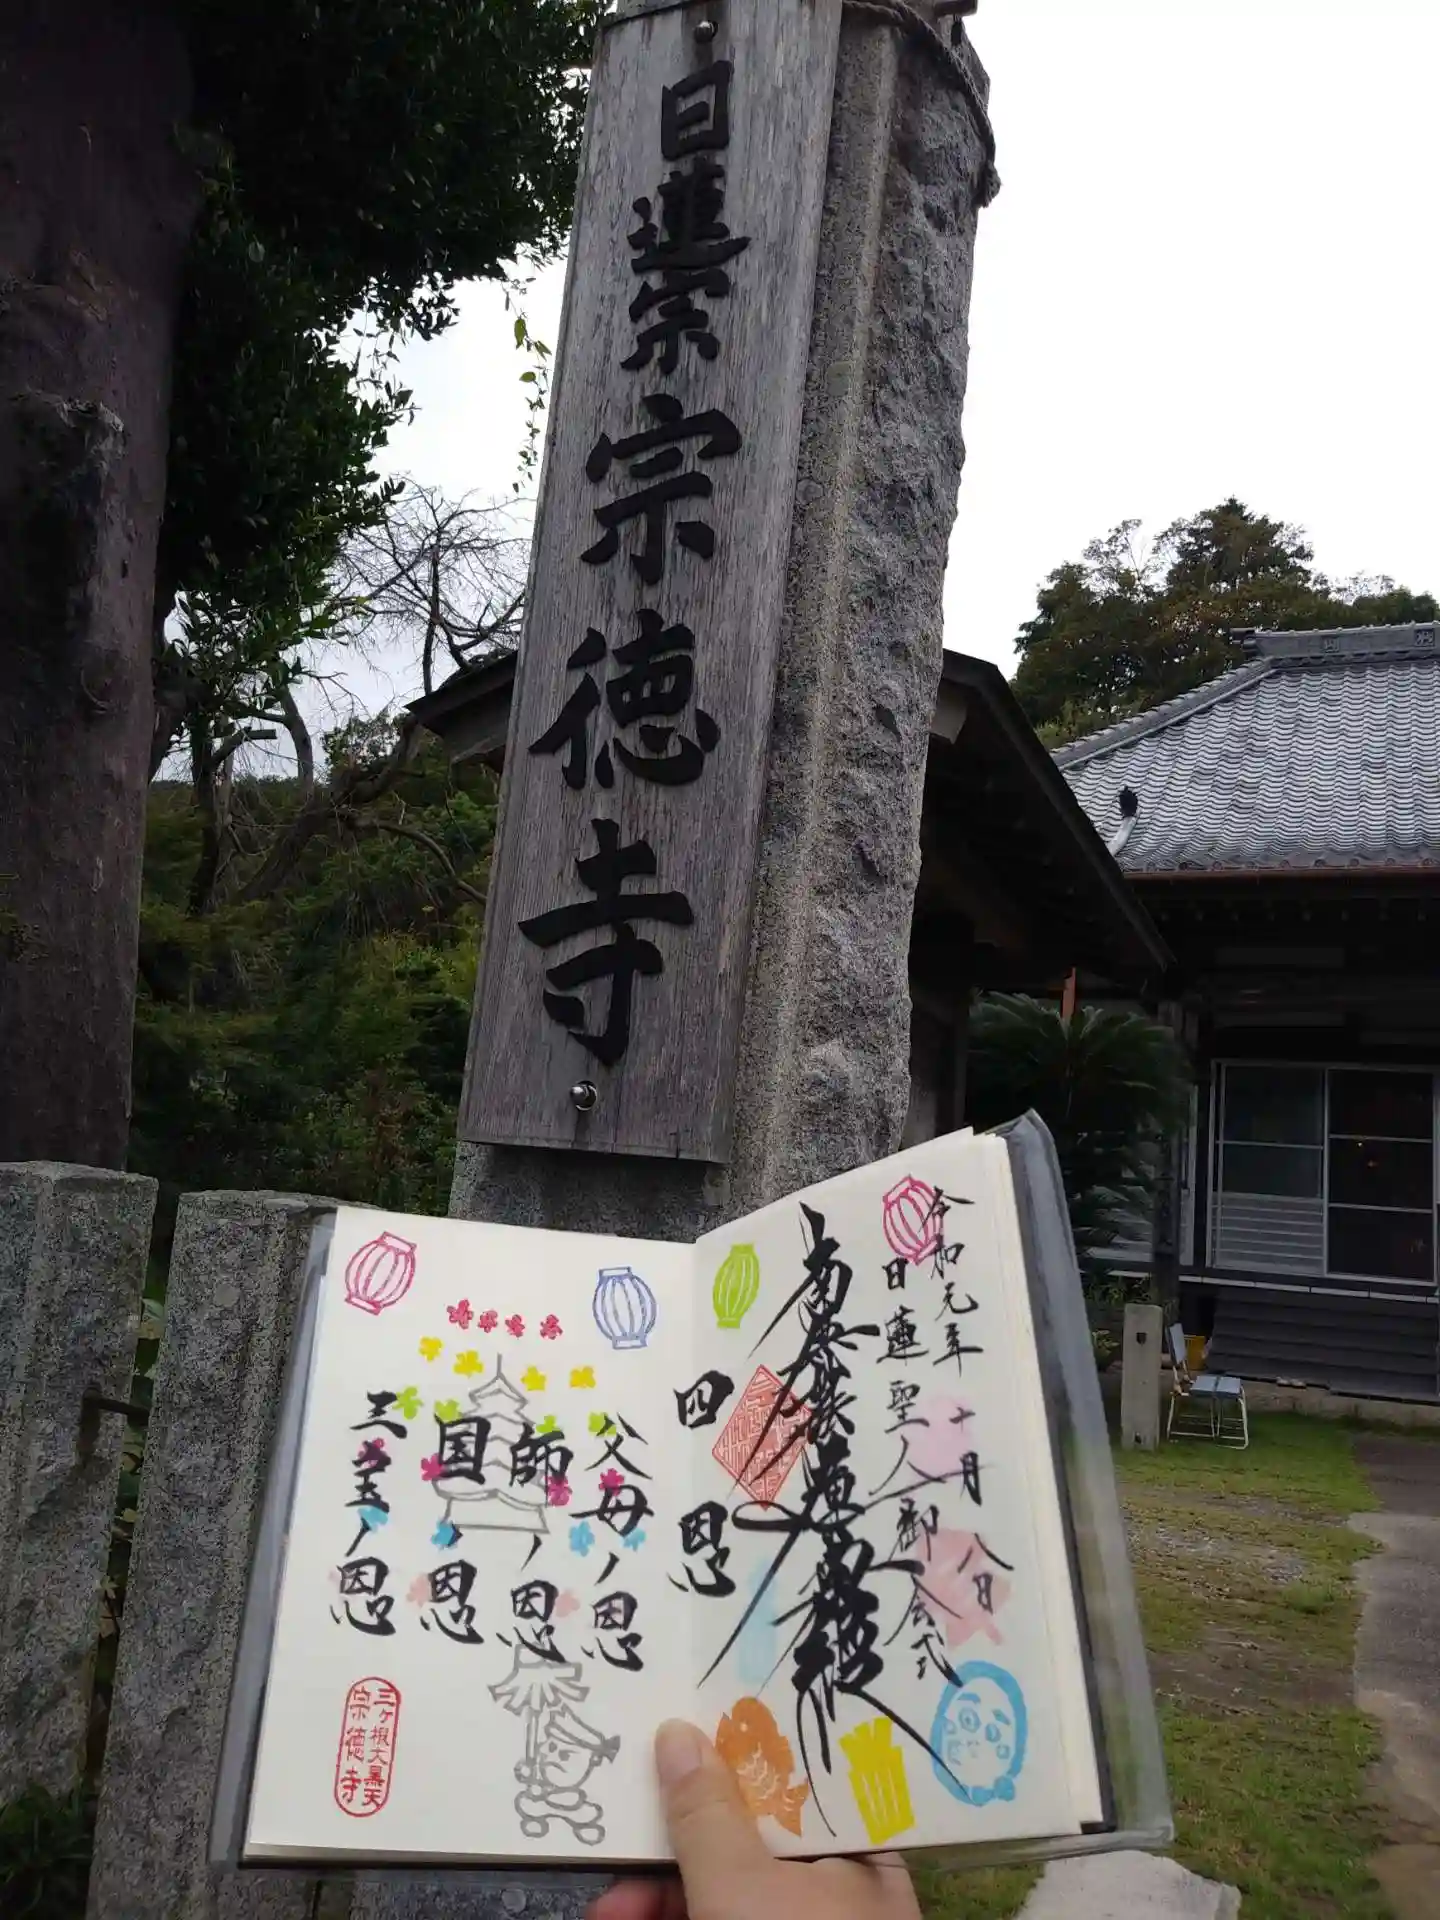 日蓮宗
宗徳寺
令和元年 十月 八日
日蓮聖人御会式
南無妙法蓮華経
四恩
父母ノ恩
師ノ恩
国ノ恩
三宝ノ恩
三ヶ根大黒天
宗徳寺